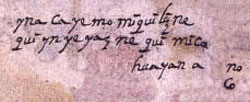 yna ca ye mo miquiliz ne
qui yn ye yaz ne qui mica
huayan a no
Co